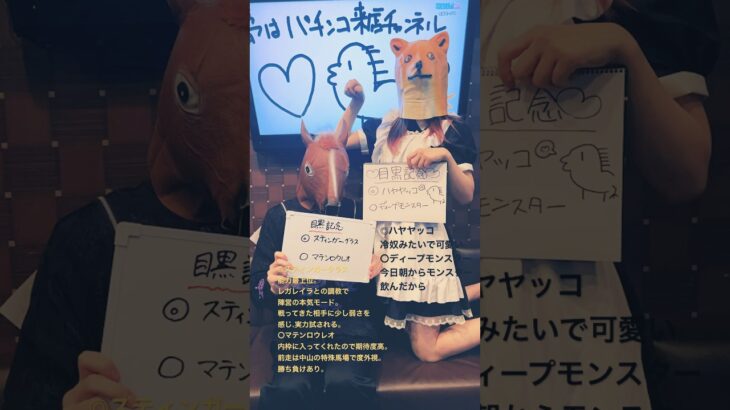 はパチンコ来店チャンネル
♡目黒記念♡
◎ハヤヤッコ
○ディープモンスター
目黒記念
◎スティンガーグラス
○マテンロウレオ
○ハヤヤッコ
冷奴みたいで可愛い
○ディープモンス
今日朝からモンス
飲んだから
◎スティンガーグラス
能力最上位。
レガレイラとの調教で
陣営の本気モード。
戦ってきた相手に少し弱さを
感じ、実力試される。
○マテンロウレオ
内枠に入ってくれたので期待度高。
前走は中山の特殊馬場で度外視。
勝ち負けあり。
目黒記
◎スティン
○マテン
記念♡
ヤヤッコ
モンスター
ヤヤッコ
みたいで可愛い
ディープモンスタ
朝からモンス